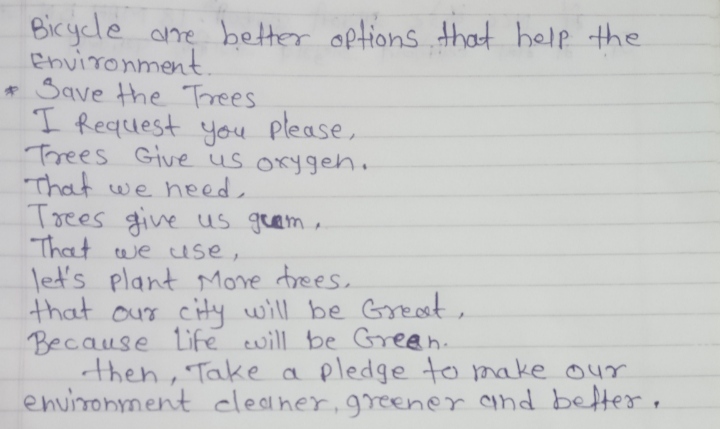 Bicycle are better options that help the
Environment.
* Save the Trees
I Request you please,
Trees Give us oxygen.
That we need,
Trees give us gum,
That we use,
let's plant More trees.
that our city will be Great,
Because life will be Green.
then, Take a pledge to make our
environment cleaner, greener and better.